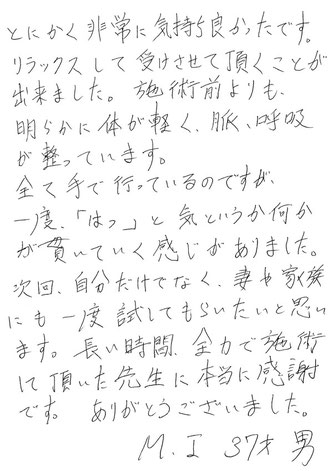 とにかく非常に気持ち良かったです。
リラックスして受けさせて頂くことが
出来ました。施術前よりも、
明らかに体が軽く、脈、呼吸
が整っています。
全て手で行っているのですが、
一度、「はっ」と気というか何か
が貫いていく感じがありました。
次回、自分だけでなく、妻や家族
にも一度試してもらいたいと思い
ます。長い時間、全力で施術
して頂いた先生に本当に感謝
です。 ありがとうございました。
M.I 37才 男